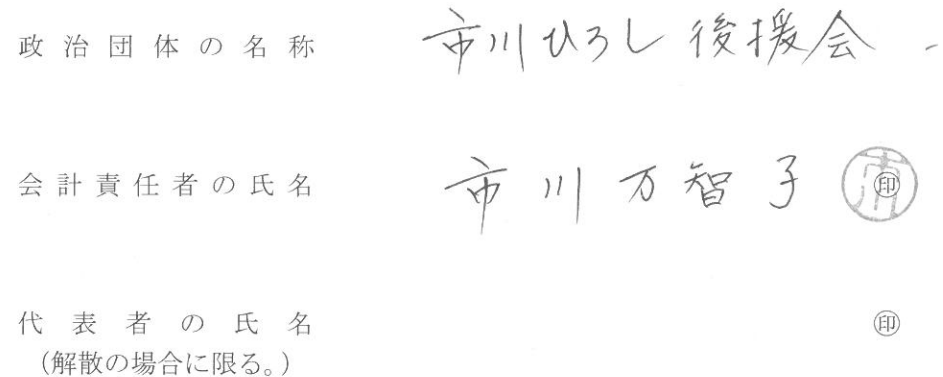 政治団体の名称 市川ひろし後援会
会計責任者の氏名 市川万智子 ㊞
代表者の氏名 ㊞
(解散の場合に限る。)